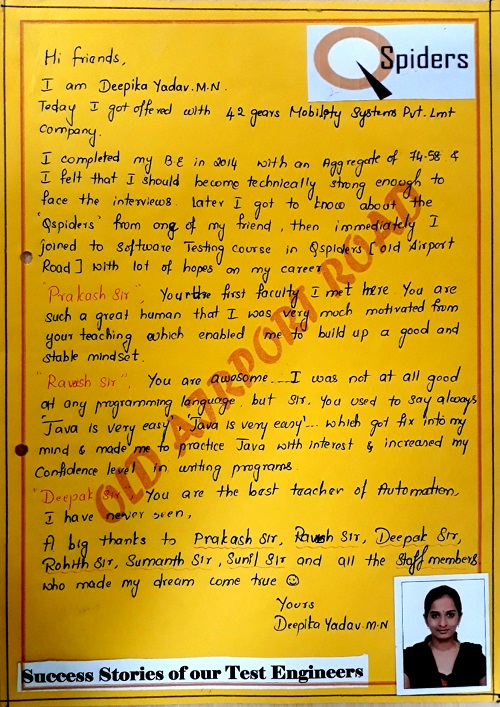 Spiders
Hi friends,
I am Deepika Yadav.M.N.
Today I got offered with 42 gears Mobility Systems Pvt. Lmt
Company.
I completed my BE in 2014 with an Aggregate of 74.58 &
I felt that I should become technically strong enough to
face the interviews. Later I got to know about the
'Qspiders' from one of my friend, then immediately I
joined to Software Testing course in Qspiders [old Airport
Road] with lot of hopes on my career
"Prakash Sir", You're the first faculty I met here. You are
such a great human that I was very much motivated from
your teaching which enabled me to build up a good and
stable mindset.
"Ravesh Sir", You are awesome....I was not at all good
at any programming language, but Sir, You used to say always
'Java is very easy' 'Java is very easy'... which got fix into my
mind & made me to practice Java with interest & increased my
Confidence level in writing programs.
"Deepak Sir", You are the best teacher of Automation,
I have never seen,
A big thanks to Prakash Sir, Ravesh Sir, Deepak Sir,
Rohith Sir, Sumanth Sir, Sunil Sir and all the Staff members
who made my dream come true ☺
Yours
Deepika Yadav.M.N
OLD AIRPORT ROAD
Success Stories of our Test Engineers